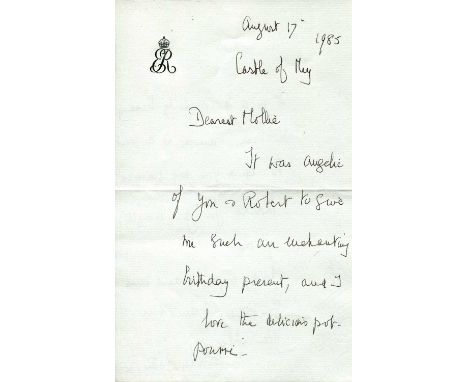 August 17
1985
Castle of Mey
Dearest Mollie
It was angelic
of you & Robert to give
me such an enchanting
birthday present, and I
love the delicious pot-
pourri -